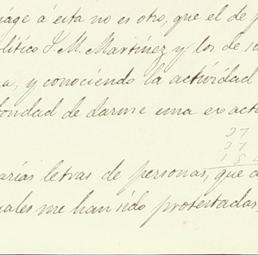 age á esta no es otro, que el de p
lítico J. M. Martinez y los de
a, y conociendo la actividad
bondad de darme una exact
27
27
184
arias letras de personas, que
uales me han sido protestadas,